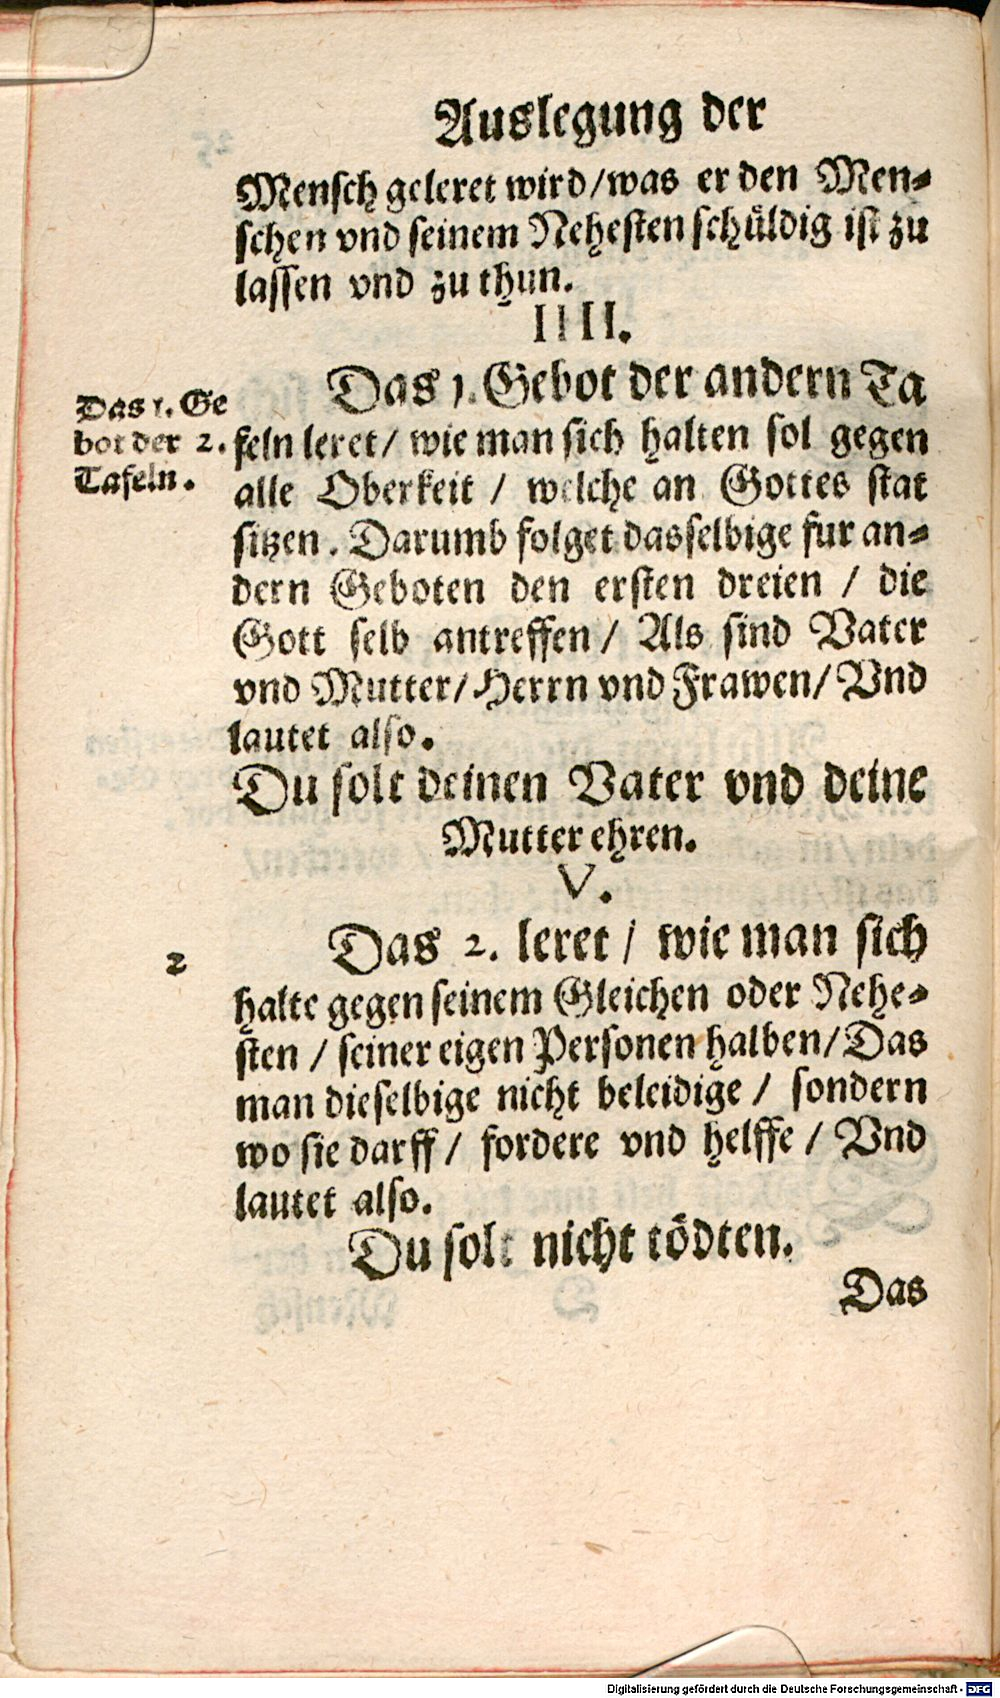 Auslegung der
Mensch geleret wird/was er den Men-
schen vnd seinem Nehesten schüldig ist zu
lassen vnd zu thun.
IIII.
Das 1. Gebot der andern Ta
Das 1. Ge
bot der 2.
Tafeln.
feln leret/ wie man sich halten sol gegen
alle Oberkeit / welche an Gottes stat
sitzen. Darumb folget dasselbige fur an-
dern Geboten den ersten dreien / die
Gott selb antreffen/ Als sind Vater
vnd Mutter/Herrn vnd Frawen/ Vnd
lautet also.
Du solt deinen Vater vnd deine
Mutter ehren.
V.
Das 2. leret / wie man sich
2
halte gegen seinem Gleichen oder Nehe-
sten / seiner eigen Personen halben/Das
man dieselbige nicht beleidige / sondern
wo sie darff / fordere vnd helffe / Vnd
lautet also.
Du solt nicht tödten.
Das
Digitalisierung gefördert durch die Deutsche Forschungsgemeinschaft - DFG